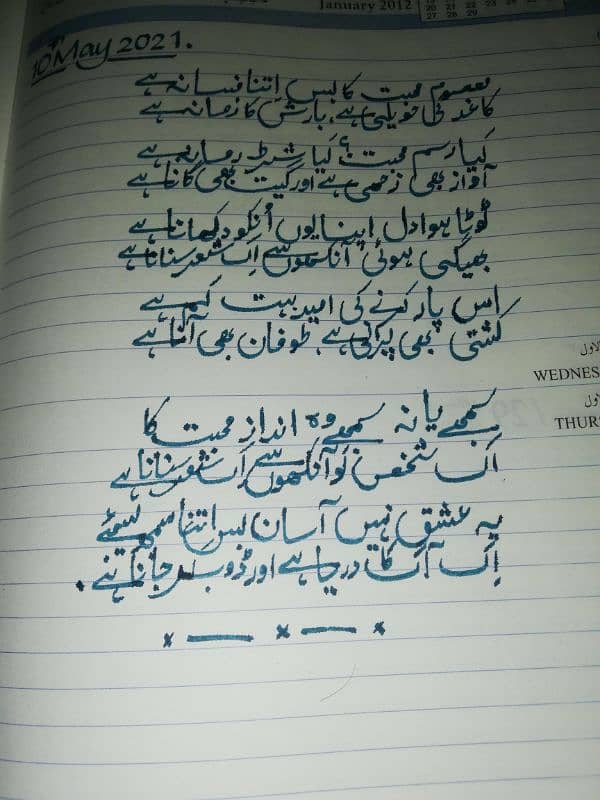 January 2012
10th May 2021.
معصوم محبت کا بس اِتنا فسانہ ہے
کاغذ کی حویلی ہے، بارش کا زمانہ ہے
کیا رسم محبت ہے کیا شرطِ زمانہ ہے
آواز بھی زخمی ہے اور گیت بھی گانا ہے
ٹوٹا ہوا دل اپنا یوں اُنکو دکھانا ہے
بھیگی ہوئی آنکھوں سے اِک شعر سنانا ہے
اس پار اُترنے کی امید بہت کم ہے
کشتی بھی پرانی ہے، طوفان بھی آنا ہے
سمجھے یا نہ سمجھے وہ انداز محبت کا
اِک شخص کو آنکھوں سے اِک شعر سنانا ہے
یہ عشق نہیں آساں بس اِتنا سمجھ لیجئے
اِک آگ کا دریا ہے اور ڈوب کر جانا ہے.
x — x — x
الاول
WEDNES
الاول
THUR